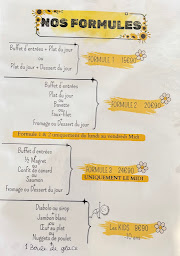 NOS FORMULES
Buffet d'entrées + Plat du jour
ou
Plat du jour + Dessert du jour
FORMULE 1 15€90
Buffet d'entrées
Plat du jour
ou
Bavette
ou
Faux-filet
Fromage ou Dessert du jour
FORMULE 2 20€90
Formule 1 & 2 uniquement du lundi au vendredi Midi
Buffet d'entrées
½ Magret
ou
Confit de canard
ou
Saumon
Fromage ou Dessert du jour
FORMULE 3 24€90
UNIQUEMENT LE MIDI
Diabolo ou sirop
Jambon blanc
ou
Œuf au plat
ou
Nuggets de poulet
1 Boule de glace
Les KIDS 9€90
10 ans